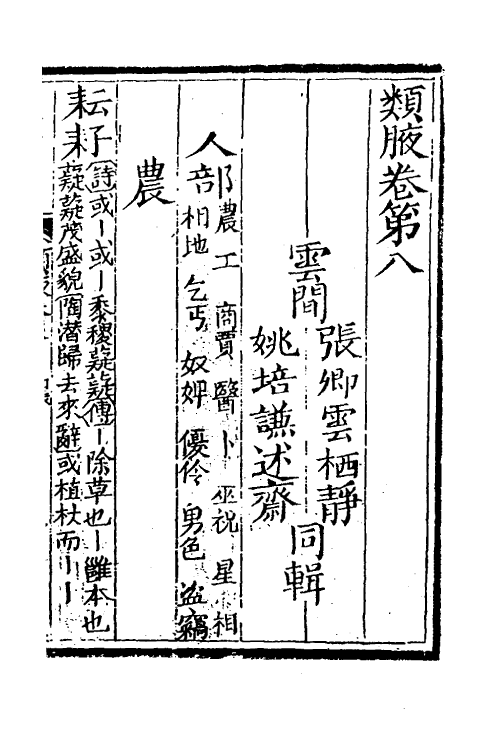 類腋卷第八
雲間 張卿雲栖靜 姚培謙述齋 同輯
人部 農 工 商賈 醫 卜 巫祝 星相
相地 乞丐 奴婢 優伶 男色 盜竊
農
耘耔 詩或丨或丨黍稷薿薿傳丨除草也丨雝本也
薿薿茂盛貌陶潛歸去來辭或植杖而丨丨